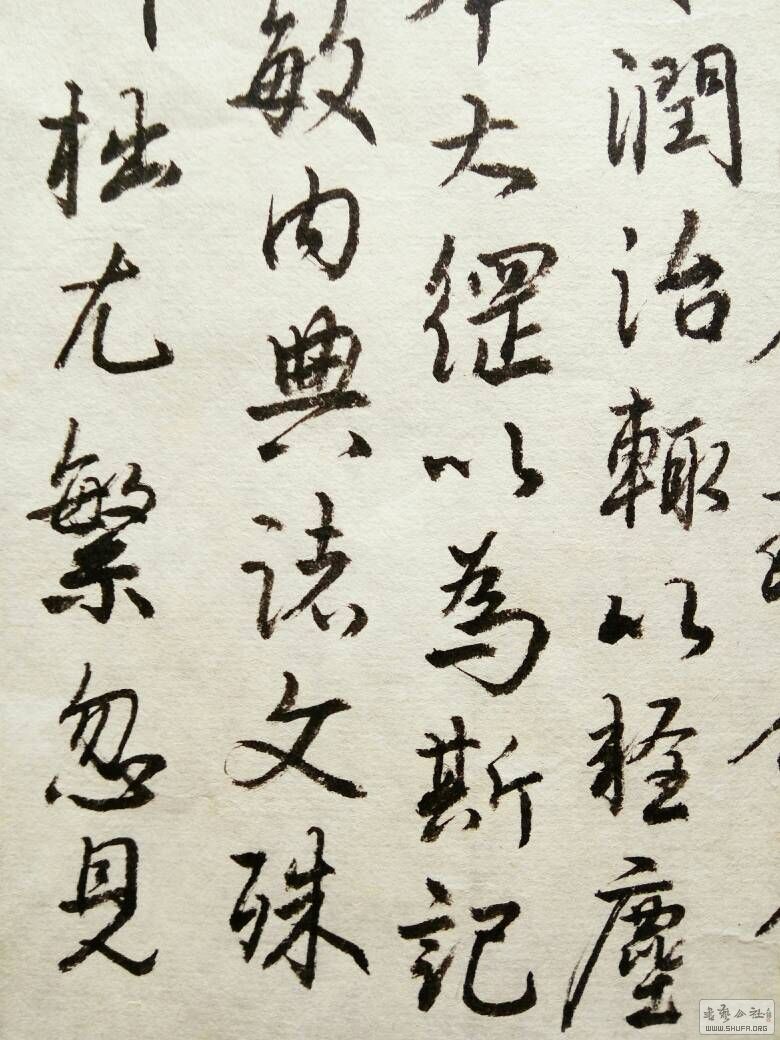 潤治輙以輕塵
大綱以為斯記
敏內典諸文殊
拙尤繁忽見
書藝公社
WWW.SHUFA.ORG